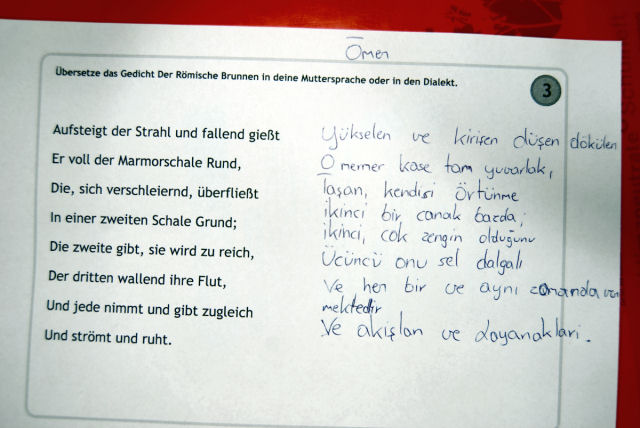 Ömer
Übersetze das Gedicht Der Römische Brunnen in deine Muttersprache oder in den Dialekt.
3
Aufsteigt der Strahl und fallend gießt
Er voll der Marmorschale Rund,
Die, sich verschleiernd, überfließt
In einer zweiten Schale Grund;
Die zweite gibt, sie wird zu reich,
Der dritten wallend ihre Flut,
Und jede nimmt und gibt zugleich
Und strömt und ruht.
Yükselen ve kirişen düşen dökülen
O mermer kase tam yuvarlak,
taşan, kendisi örtünme
ikinci bir canak bazda;
ikinci, cok zengin olduğunu
Ücüncü onu sel dalgalı
Ve her bir ve aynı zamanda ver
mektedir
Ve akışları ve dayanakları.